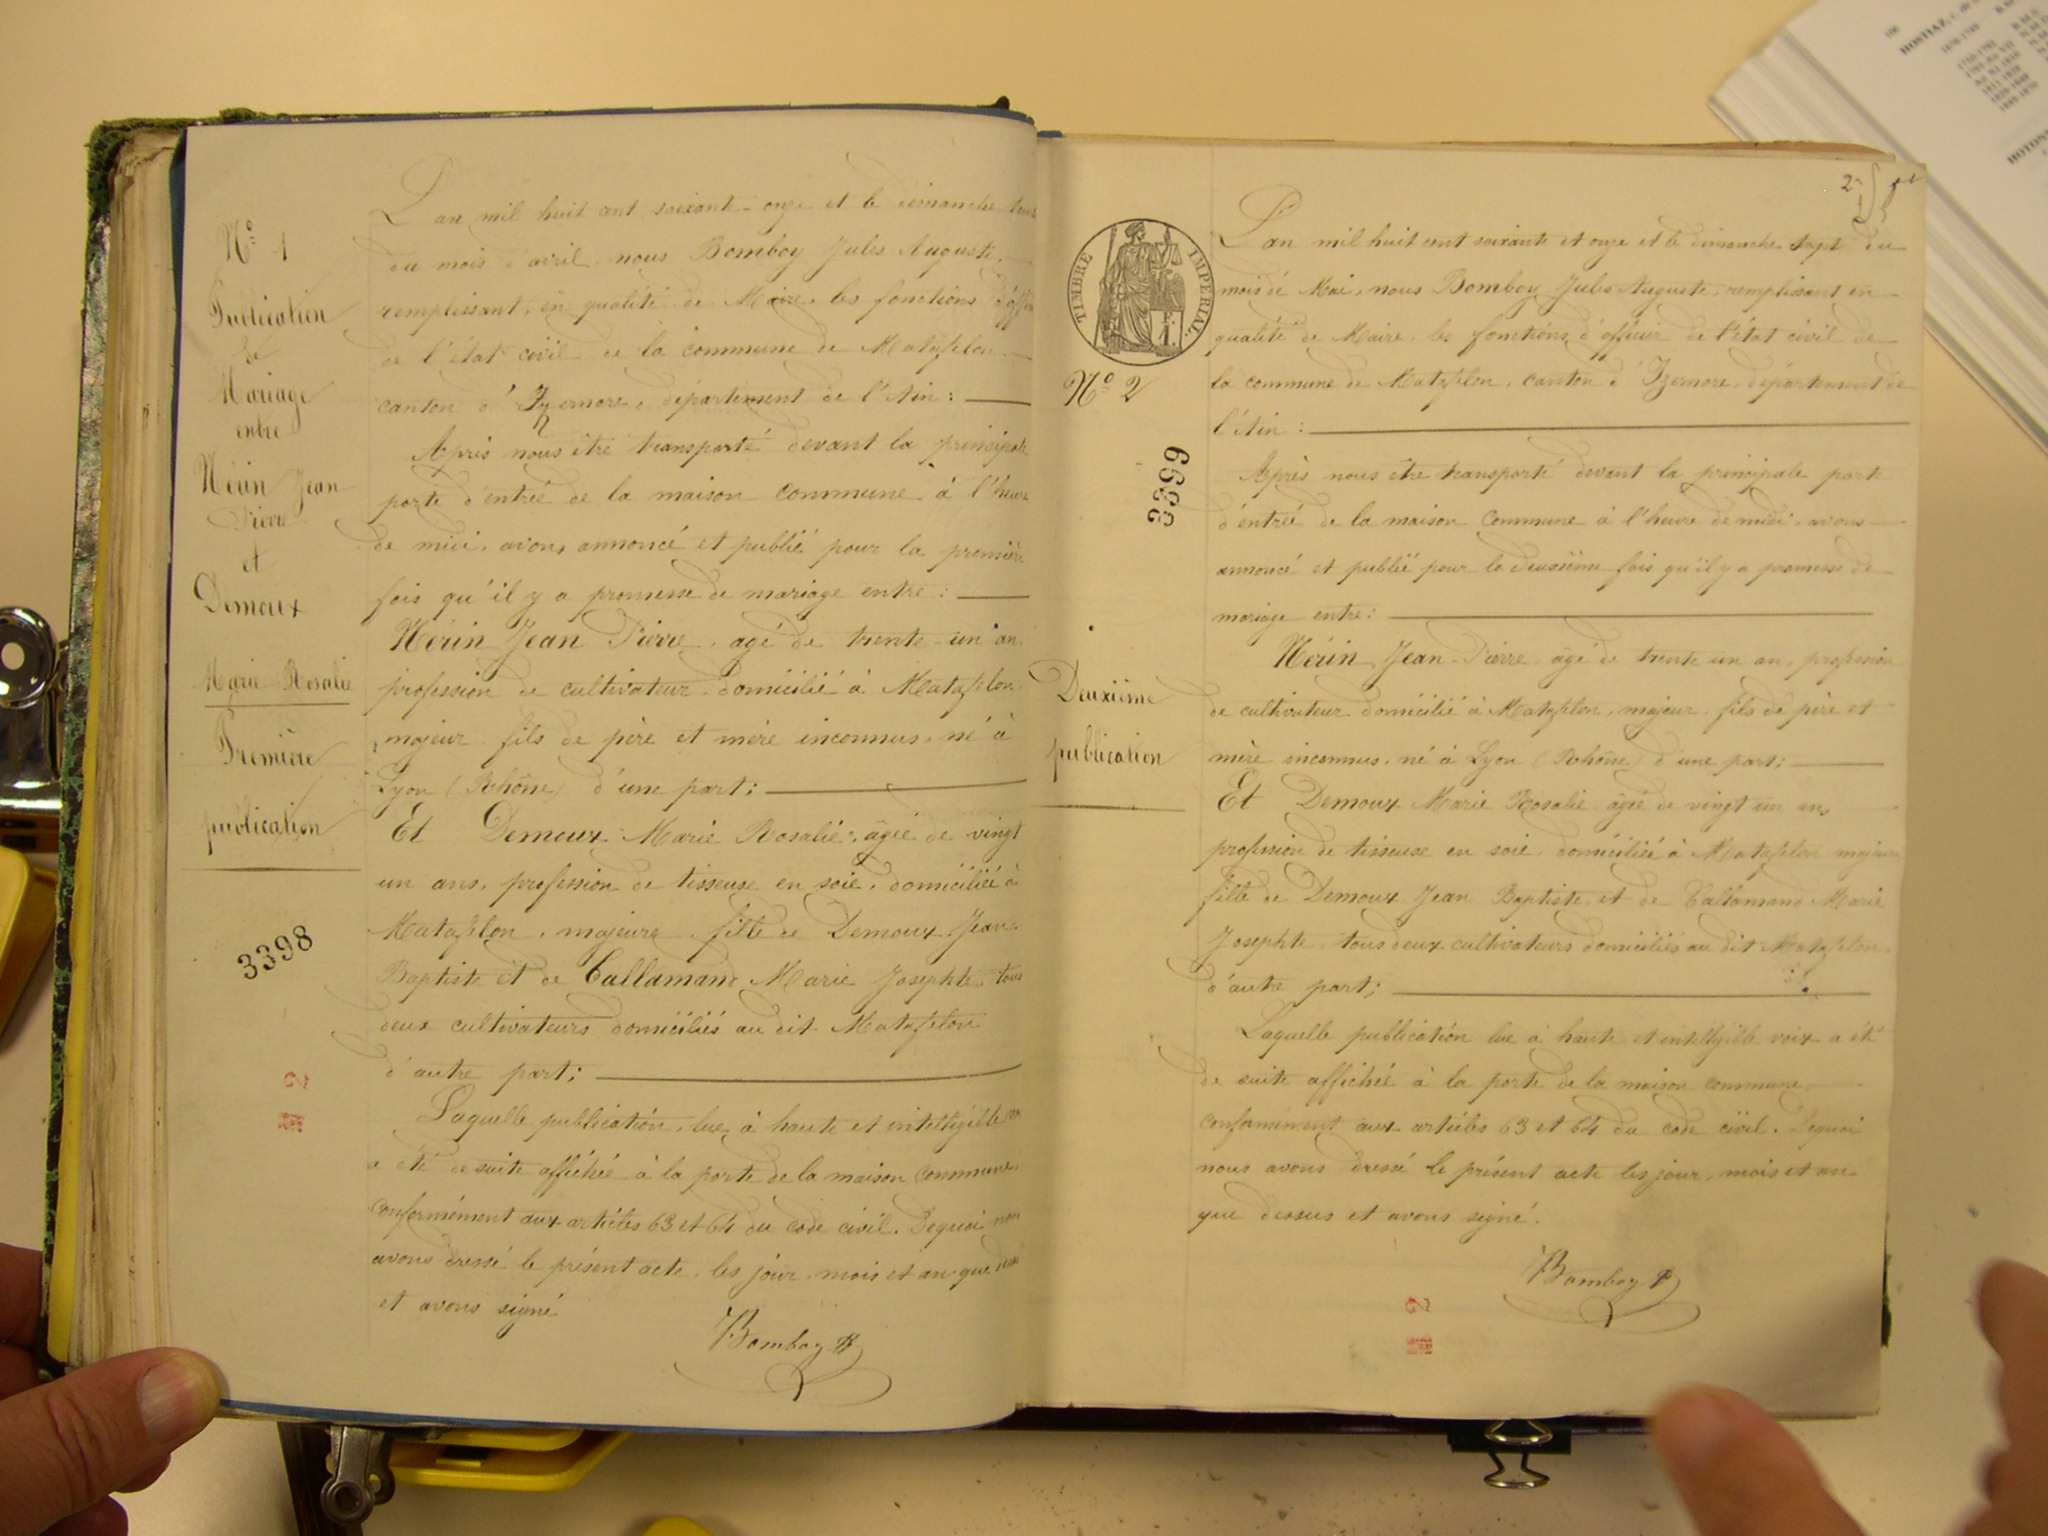 N° 1
Publication
de
Mariage
entre
Nérin Jean
Pierre
et
Demoux
Marie Rosalie
Première
publication
3398
L'an mil huit cent soixante-onze et le dimanche
du mois d'avril, nous Bomboy Jules Auguste,
remplissant, en qualité de Maire, les fonctions
de l'état civil de la commune de Matafelon
canton d'Izernore, département de l'Ain :
Après nous être transporté devant la principale
porte d'entrée de la maison commune à l'heure
de midi, avons annoncé et publié pour la première
fois qu'il y a promesse de mariage entre :
Nérin Jean Pierre, agé de trente-un an,
profession de cultivateur domicilié à Matafelon,
majeur, fils de père et mère inconnus, né à
Lyon (Rhône) d'une part ;
Et Demoux Marie Rosalie, âgée de vingt
un ans, profession de tisseuse en soie, domiciliée à
Matafelon, majeure, fille de Demoux Jean
Baptiste et de Callamand Marie Josephte, tous
deux cultivateurs domiciliés au dit Matafelon
d'autre part ;
Laquelle publication, lue à haute et intelligible
a été de suite affichée à la porte de la maison commune
conformément aux articles 63 et 64 du code civil. Dequoi nous
avons dressé le présent acte, les jour, mois et an que
et avons signé
Bomboy
2
TIMBRE IMPÉRIAL.
1
N° 2
3399
Deuxième
publication
L'an mil huit cent soixante et onze et le dimanche sept du
mois de Mai, nous Bomboy Jules Auguste, remplissant en
qualité de Maire, les fonctions d'officier de l'état civil de
la commune de Matafelon, canton d'Izernore, département de
l'Ain :
Après nous être transporté devant la principale porte
d'entrée de la maison commune à l'heure de midi, avons
annoncé et publié pour la deuxième fois qu'il y a promesse de
mariage entre :
Nérin Jean-Pierre, âgé de trente un an, profession
de cultivateur domicilié à Matafelon, majeur, fils de père et
mère inconnus, né à Lyon (Rhône) d'une part ;
Et Demoux Marie Rosalie âgée de vingt un ans,
profession de tisseuse en soie, domiciliée à Matafelon majeure
fille de Demoux Jean Baptiste et de Callamand Marie
Josephte, tous deux cultivateurs domiciliés au dit Matafelon,
d'autre part ;
Laquelle publication lue à haute et intelligible voix a été
de suite affichée à la porte de la maison commune
conformément aux articles 63 et 64 du code civil. Dequoi
nous avons dressé le présent acte les jour, mois et an
que dessus et avons signé.
Bomboy